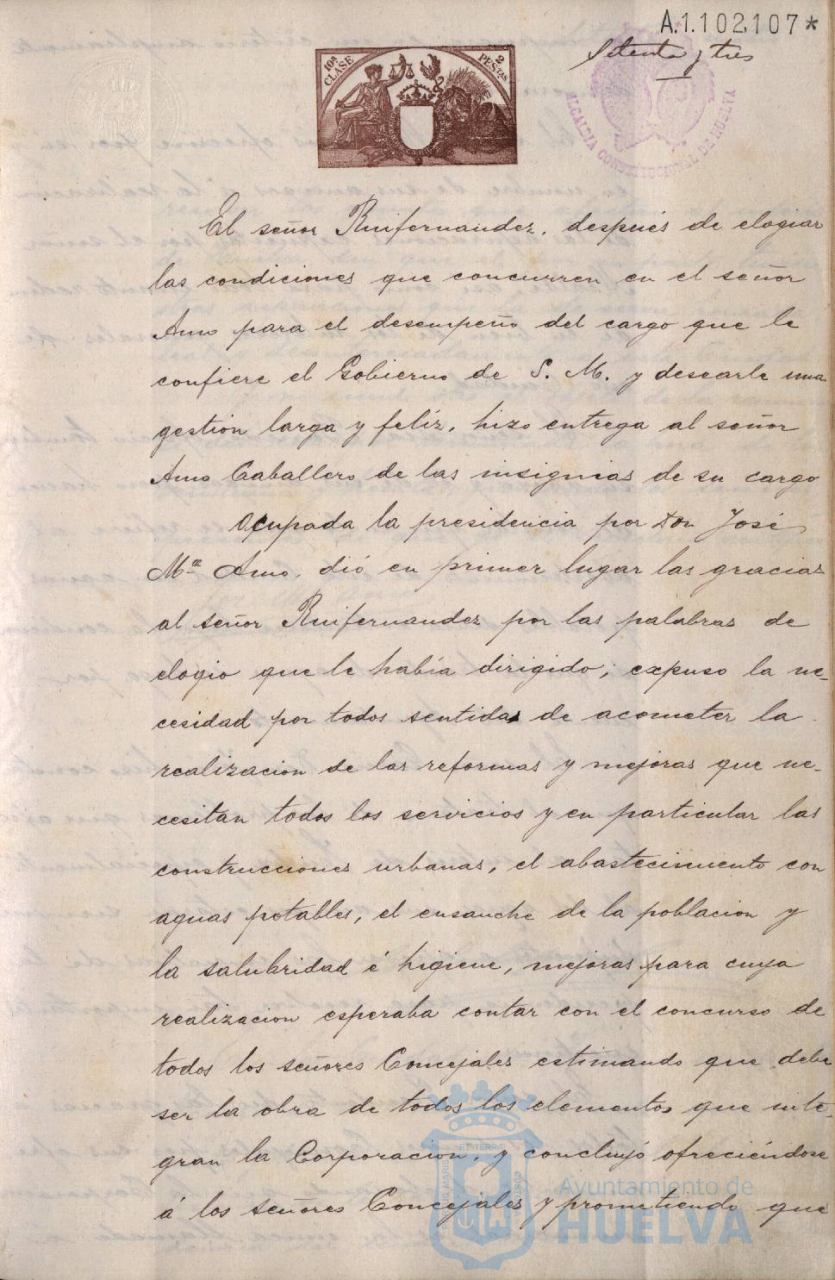 A.1.102,107*
Setenta y tres
10ª CLASE
2 PESETAS
ALCALDIA CONSTITUCIONAL DE HUELVA
El señor Ruifernandez, después de elogiar
las condiciones que concurren en el señor
Amo para el desempeño del cargo que le
confiere el Gobierno de S. M. y desearle una
gestión larga y felíz, hizo entrega al señor
Amo Caballero de las insignias de su cargo
Ocupada la presidencia por Don José
Mª Amo, dió en primer lugar las gracias
al señor Ruifernandez por las palabras de
elogio que le había dirigido; expuso la ne-
cesidad por todos sentida de acometer la
realizacion de las reformas y mejoras que ne-
cesitan todos los servicios y en particular las
construcciones urbanas, el abastecimiento con
aguas potables, el ensanche de la poblacion y
la salubridad é higiene, mejoras para cuya
realizacion esperaba contar con el concurso de
todos los señores Concejales estimando que debe
ser la obra de todos los elementos que inte-
gran la Corporacion, y concluyó ofreciéndose
á los señores Concejales y prometiendo que
Ayuntamiento de
HUELVA